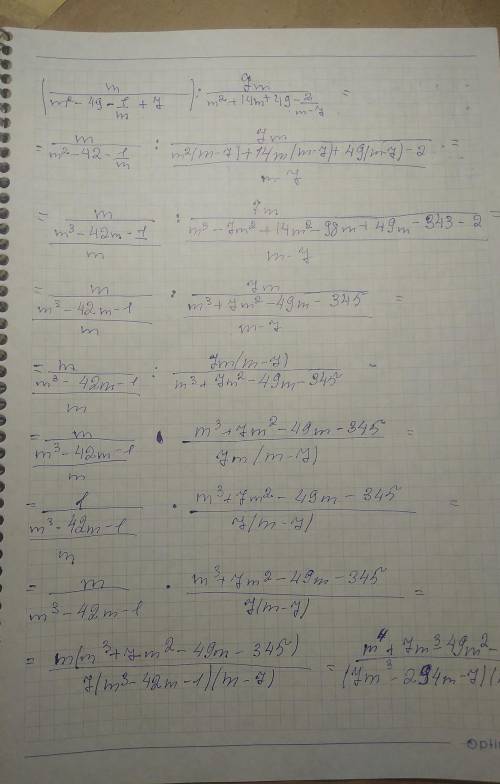 (m/(m² - 49 - 1/m + 7)) : 7m/(m² + 14m + 49 - 2/(m-7)) =
= m/(m² - 42 - 1/m) : 7m/((m²(m-7) + 14m(m-7) + 49(m-7) - 2)/(m-7)) =
= m/((m³ - 42m - 1)/m) : 7m/((m³ - 7m² + 14m² - 98m + 49m - 343 - 2)/(m-7)) =
= m/((m³ - 42m - 1)/m) : 7m/((m³ + 7m² - 49m - 345)/(m-7)) =
= m/((m³ - 42m - 1)/m) : 7m(m-7)/(m³ + 7m² - 49m - 345) =
= m/((m³ - 42m - 1)/m) · (m³ + 7m² - 49m - 345)/(7m(m-7)) =
= 1/((m³ - 42m - 1)/m) · (m³ + 7m² - 49m - 345)/(7(m-7)) =
= m/(m³ - 42m - 1) · (m³ + 7m² - 49m - 345)/(7(m-7)) =
= m(m³ + 7m² - 49m - 345)/(7(m³ - 42m - 1)(m-7)) = m⁴ + 7m³ - 49m² - /(7m³ - 294m - 7)(